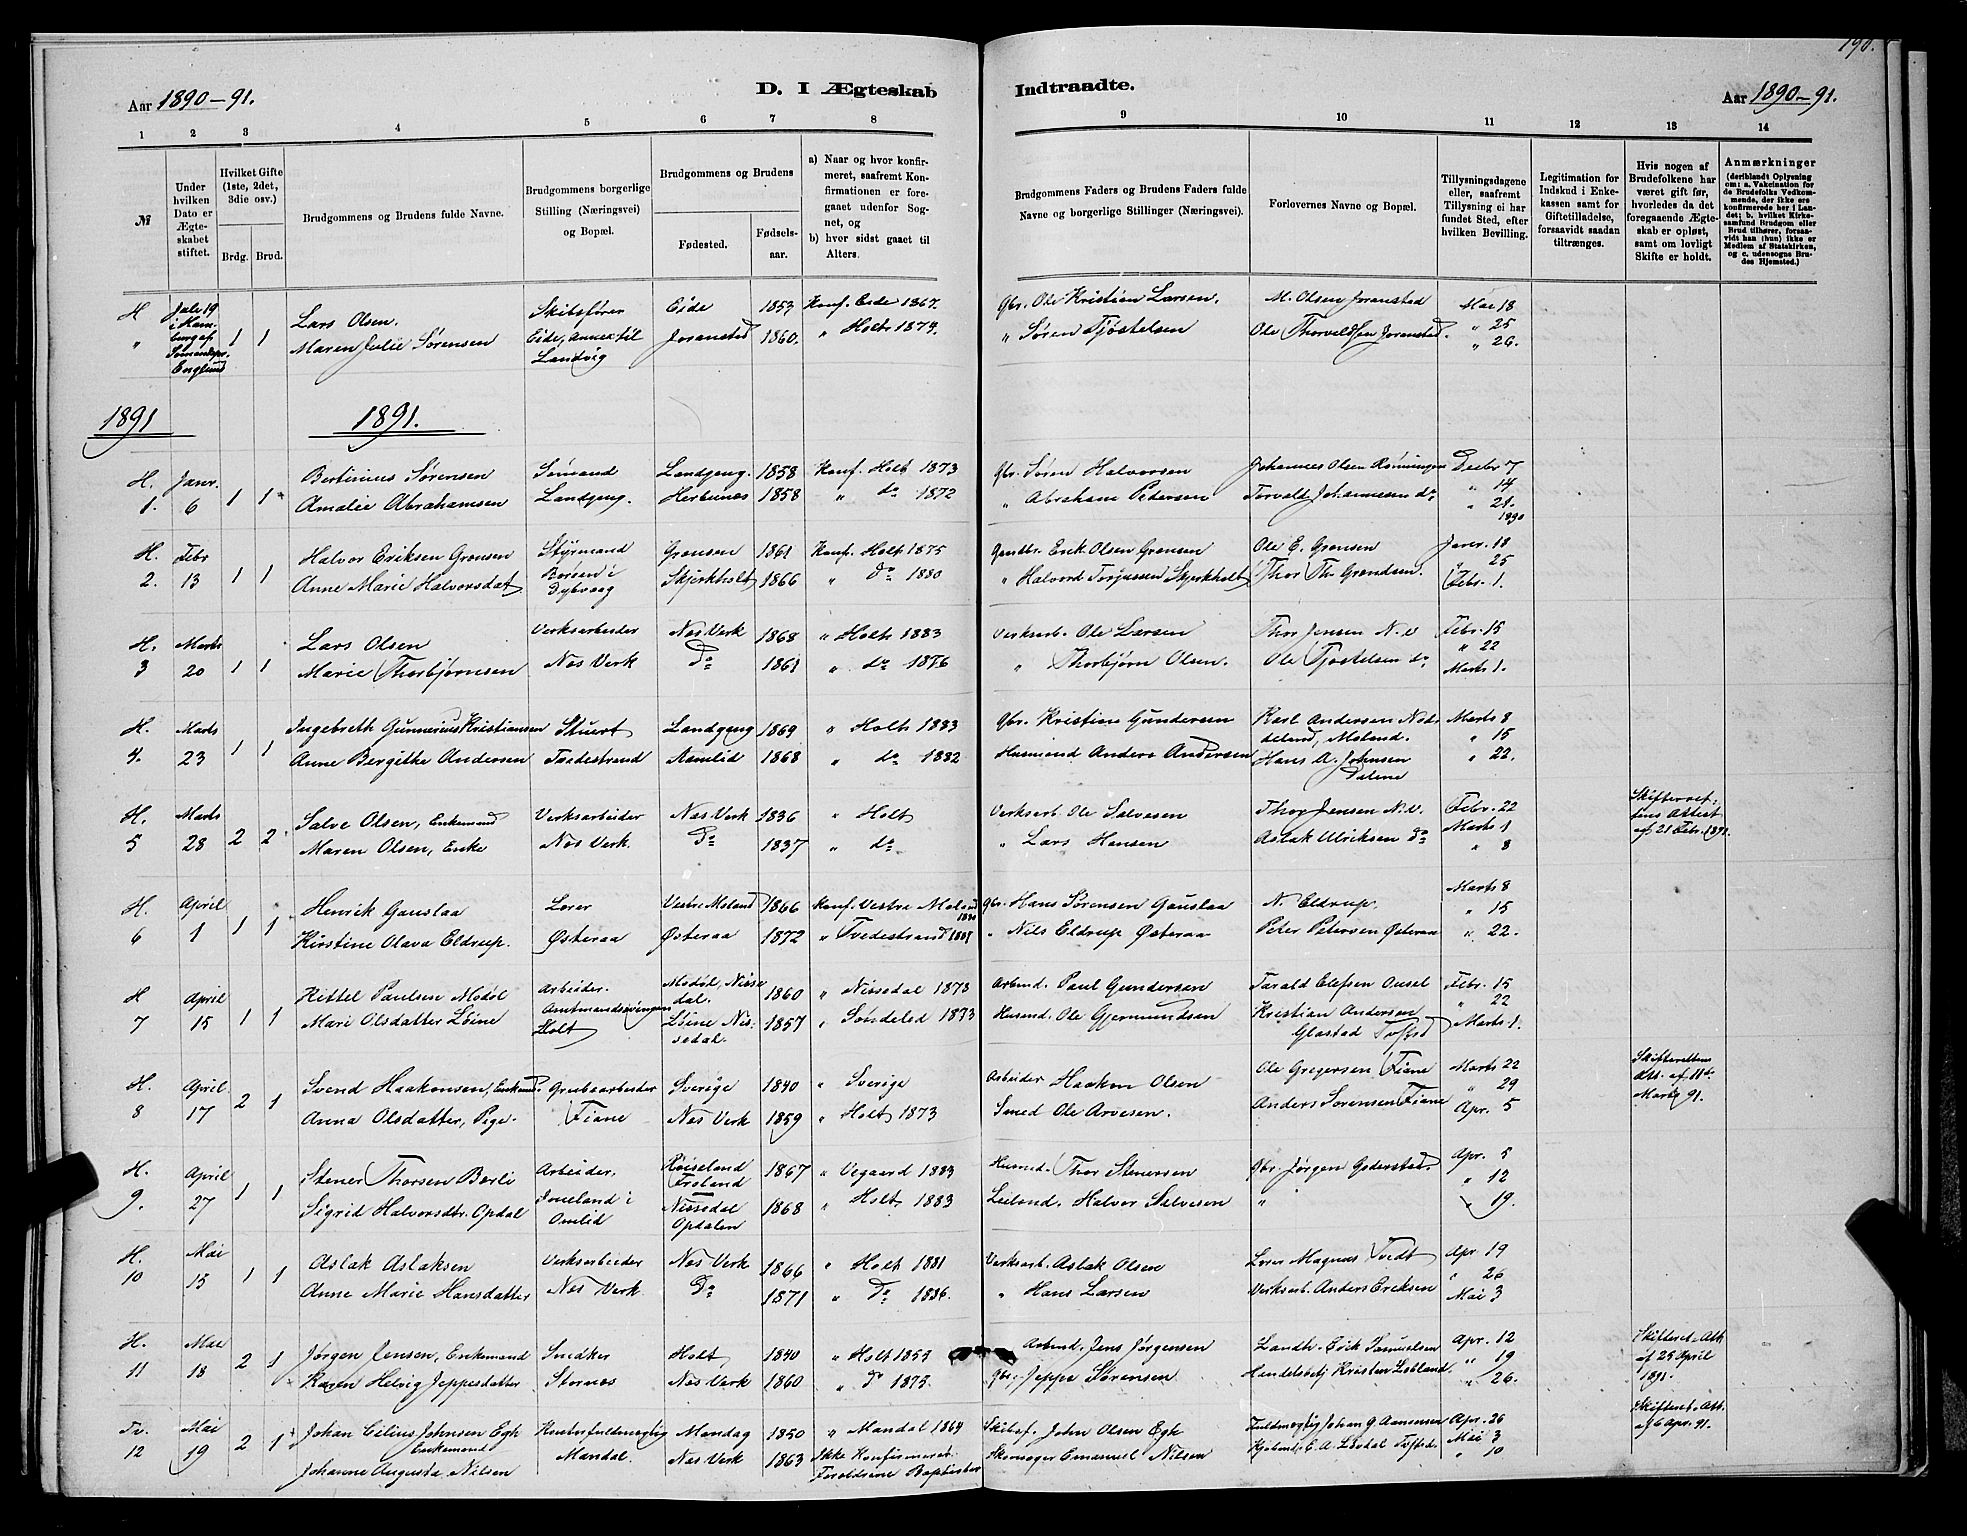 190.
Aar 1890-91.
D. I Ægteskab Indtraadte.
Aar 1890-91.
1 2 3 4 5 6 7 8 9 10 11 12 13 14
№
Under hvilken Dato er Ægteskabet stiftet.
Hvilket Gifte (1ste, 2det, 3die osv.)
Brdg. Brud.
Brudgommens og Brudens fulde Navne.
Brudgommens borgerlige Stilling (Næringsvei) og Bopæl.
Brudgommens og Brudens
Fødested. Fødselsaar.
a) Naar og hvor konfirmeret, saafremt Konfirmationen er foregaaet udenfor Sognet, og
b) hvor sidst gaaet til Alters.
Brudgommens Faders og Brudens Faders fulde Navne og borgerlige Stillinger (Næringsvei).
Forlovernes Navne og Bopæl.
Tillysningsdagene eller, saafremt Tillysning ei har fundet Sted, efter hvilken Bevilling.
Legitimation for Indskud i Enkekassen samt for Giftetilladelse, forsaavidt saadan tiltrænges.
Hvis nogen af Brudefolkene har været gift før, hvorledes da det foregaaende Ægteskab er opløst, samt om lovligt Skifte er holdt.
Anmærkninger (deriblandt Oplysning om: a. Vakcination for de Brudefolks Vedkommende, der ikke ere konfirmerede her i Landet; b. hvilket Kirkesamfund Brudgom eller Brud tilhører, forsaavidt han (hun) ikke er Medlem af Statskirken, og c. udensogns Brudes Hjemsted.)
H Jule 19 1 1 Lars Olsen. Skibsfører Eide 1853 Konf. Eide 1867. Gbr. Ole Kristian Larsen. M. Olsen Joranstad Mai 18
" Maren Julie Sørensen Eide, Annex til Landvig Joranstad 1860. " Holt 1874. " Søren Tjøstelsen Ole Thorvaldsen Joranstad. " 25 " 26.
England
1891 1891.
H. Janr. Bertinius Sørensen Sømand Landgang. 1858 Konf. Holt 1873 Gbr. Søren Halvorsen Johannes Olsen Rønningen Decbr 7
1. 6 1 1 Amalie Abrahamsen Landgang. Herbunes 1858 " do 1872 " Abraham Pedersen Torvald Johannesen do " 14 " 21. 1890
H. Febr Halvor Eriksen Grønsen Styrmand Grønsen 1861 Konf. Holt 1875 Gaardbr. Erik Olsen Grønsen Ole E. Grønsen Janr. 18
2. 13 1 1 Anne Marie Halvorsdat Borsen i Dybvaag Skjerkholt 1866 " do 1880 " Halvord Torjussen Skjerkholt Thor Th. Grendsen. " 25 Febr. 1.
H. Marts Lars Olsen Verksarbeider Næs Verk 1868 " Holt 1883 Verksarb. Ole Larsen Thor Jensen N.V Febr. 15
3 20 1 1 Marie Thorbjørnsen Næs Verk Do 1861 " do 1876 " Thorbjørn Olsen. Ole Tjøstelsen do " 22 Marts 1.
H. Marts Ingebreth Gunnerius Kristiansen Stuert Landgang 1869 " Holt 1883 Gbr. Kristine Gundersen Karl Andersen Nødeland, Moland. Marts 8
4. 23 1 1 Anne Bergithe Andersen Tvedestrand Aamlid 1868 " do 1882 Husmand Anders Andersen Hans A. Johnsen Dalene " 15 " 22.
H. Marts Salve Olsen, Enkemand Verksarbeider Næs Verk 1836 " Holt Verksarb. Ole Salvesen Thor Jensen N.V. Febr. 22 Skifterettens Attest
5 28 2 2 Maren Olsen, Enke Næs Verk. Do 1837 " do " Lars Hansen Aslak Ulriksen do Marts 1 " 8 af 21 Febr. 1891.
H. April Henrik Gauslaa Lærer Vestre Moland 1866 Konf. Vestre Moland 1880 Gbr. Hans Sørensen Gauslaa N. Eldrup. Marts 8
6 1 1 1 Kirstine Olava Eldrup. Østeraa Østeraa 1872 " Tvedestrand " Nils Eldrup Østeraa Peter Petersen Østeraa " 15 " 22.
H April Kittel Paulsen Modøl Arbeider. Modøl, Nissedal. 1860 " Nissedal 1873 Arbmd. Paul Gundersen Tarald Olefsen Ousel Febr. 15
7 15 1 1 Mari Olsdatter Løine Amtmandssvingen Holt Løine Nissedal. 1857 " Søndeled 1873 Husmd. Ole Gjermundsen Kristian Andersen Glastad " 22 Marts 1.
H. April Svend Haakonsen, Enkemd. Grubearbeider Sverige 1840 " Sverige Arbeider Haakon Olsen Ole Gregersen Fiane Marts 22 Skifterettens
8 17 2 1 Anna Olsdatter, Pige. Fiane Næs Verk 1859 " Holt 1873 Smed Ole Arvesen. Anders Sørensen Fiane " 29 Apr. 5 Att. af 11te Marts 91.
H. April Stener Thorsen Berli Arbeider. Froland 1867 " Vegaard 1883 Husmd. Thor Stenersen Gbr. Jørgen Goderstad. Apr. 5
9. 27 1 1 Sigrid Halvorsdtr. Opdal i Omlid Nissedal Opdalen 1868 " Holt 1883 Leilend. Halvor Salvesen " " 12 " 19.
H. Mai Aslak Aslaksen Verksarbeider Næs Verk 1866 " Holt 1881 Verksarb. Aslak Olsen Lærer Magnus Tvedt Apr. 19
10 15 1 1 Anne Marie Hansdatter Næs Verk. Do 1871 " Do 1886. " Hans Larsen Verksarb. Anders Eriksen " 26 Mai 3
H. Mai Jørgen Jensen, Enkemand Snedker Holt 1840 " Holt 1855 Arbmd. Jens Jørgensen Landh. Erik Samuelsen Apr. 12 Skifteret. Att.
11 18 2 1 Karen Helvig Jeppesdatter Stornæs Næs Verk 1860 " do 1875. Gbr. Jeppe Sørensen Handelsbetj. Kristen Lebland. " 19 " 26. af 25 April 1891.
Tv. Mai Johan Cilius Johnsen Egh Enkemand Kontorfuldmægtig Mandag 1850 " Mandal 1864 Skibsf. John Olsen Egh Fuldmægtig Johan G. Aamonsen Apr. 26 Skifteret. Att.
12 19 2 1 Johanne Augusta Nilsen Mandal. Næs Verk 1863 Ikke Konfirmeret. Forældrene Baptister Skomager Emanuel Nilsen Mai 3 " 10 af 6 Apr. 91.